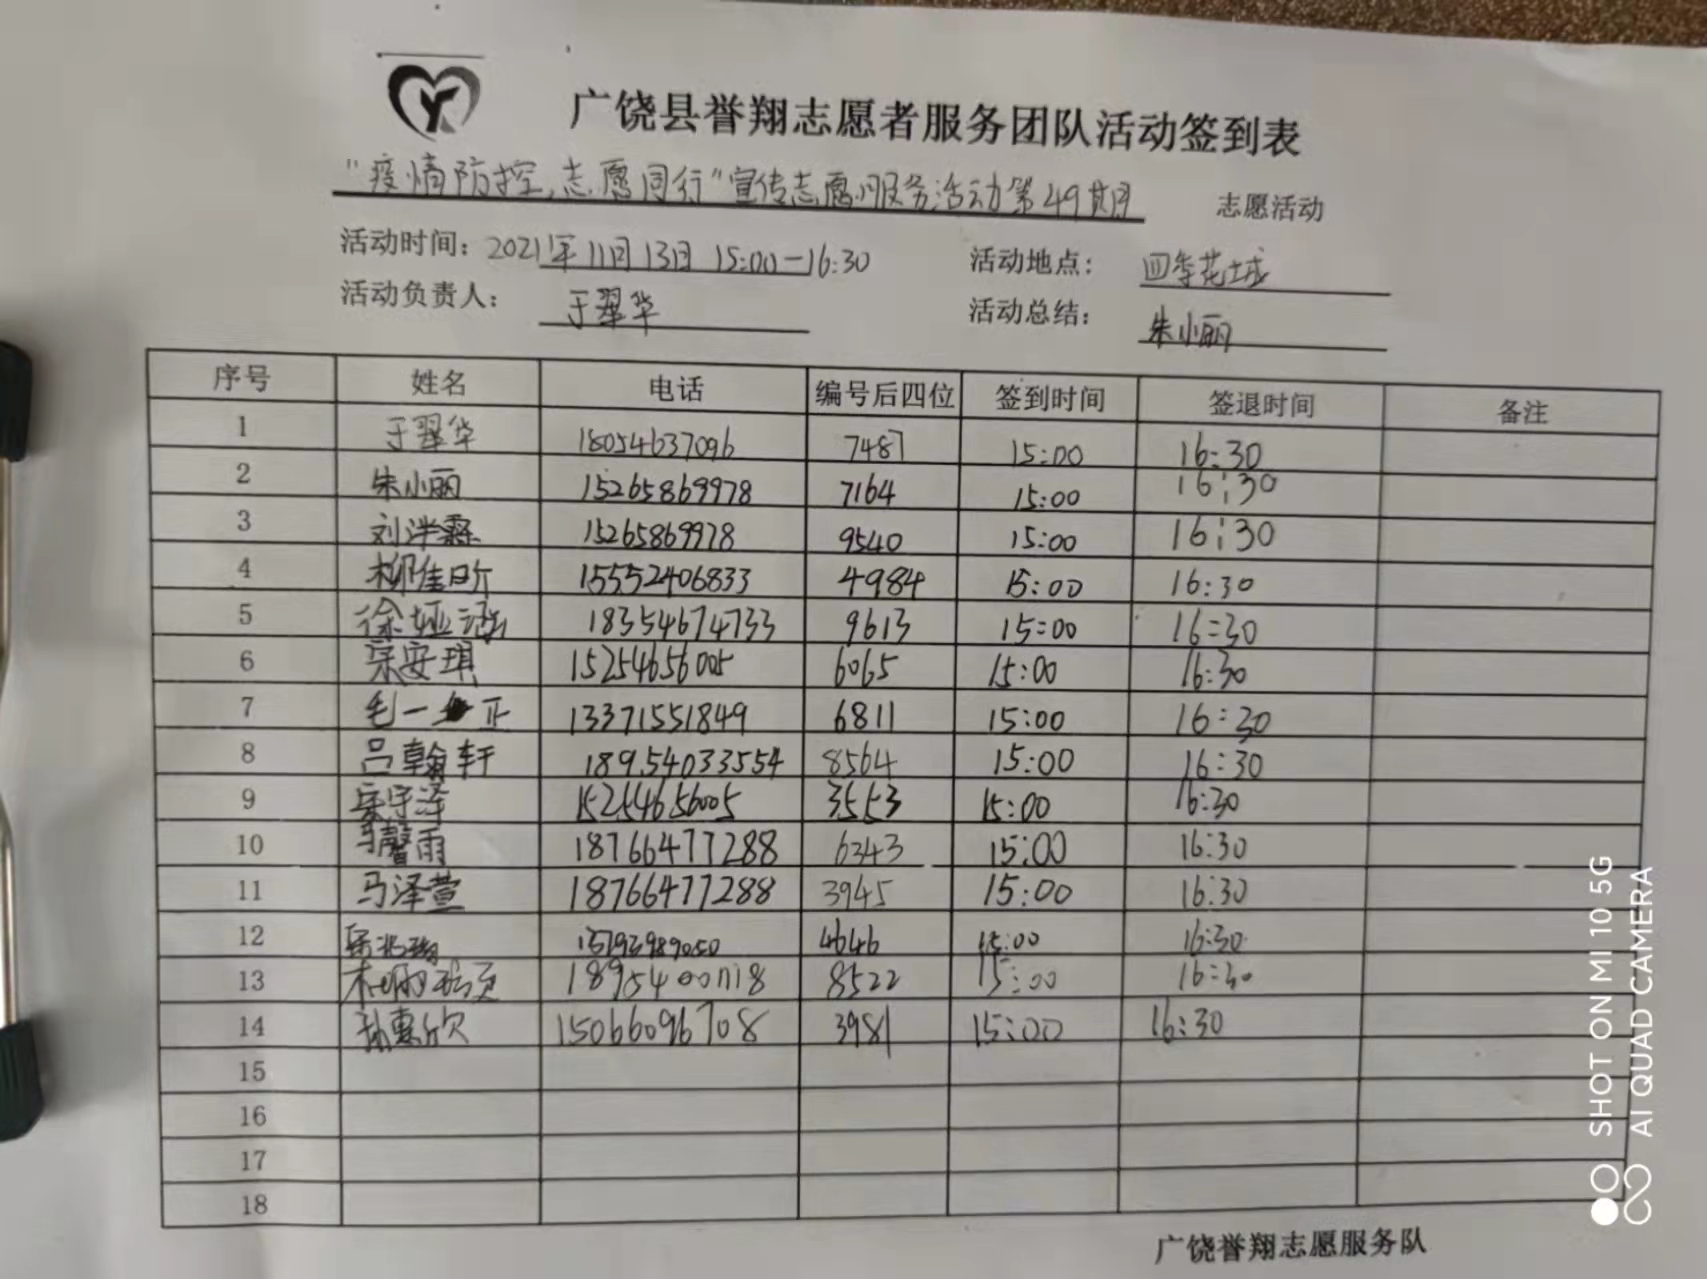 广饶县誉翔志愿者服务团队活动签到表
"疫情防控,志愿同行"宣传志愿服务活动第49期 志愿活动
活动时间: 2021年11月13日 15:00-16:30 活动地点: 四季花城
活动负责人: 于翠华 活动总结: 朱小丽
序号 姓名 电话 编号后四位 签到时间 签退时间 备注
1 于翠华 18054637096 7487 15:00 16:30
2 朱小丽 15265869978 7164 15:00 16:30
3 刘洋霖 15265869978 9540 15:00 16:30
4 柳佳昕 15552406833 4984 15:00 16:30
5 徐娅涵 18354674733 9613 15:00 16:30
6 宗安琪 15254656005 6065 15:00 16:30
7 毛一正 13371551849 6811 15:00 16:30
8 吕翰轩 18954033554 8564 15:00 16:30
9 宗宇泽 15254656005 3553 15:00 16:30
10 马馨雨 18766477288 6343 15:00 16:30
11 马泽萱 18766477288 3945 15:00 16:30
12 4646 15:00 16:30
13 8522 15:00 16:30
14 孙惠欣 15066096708 3981 15:00 16:30
15
16
17
18
广饶誉翔志愿服务队
SHOT ON MI 10 5G
AI QUAD CAMERA